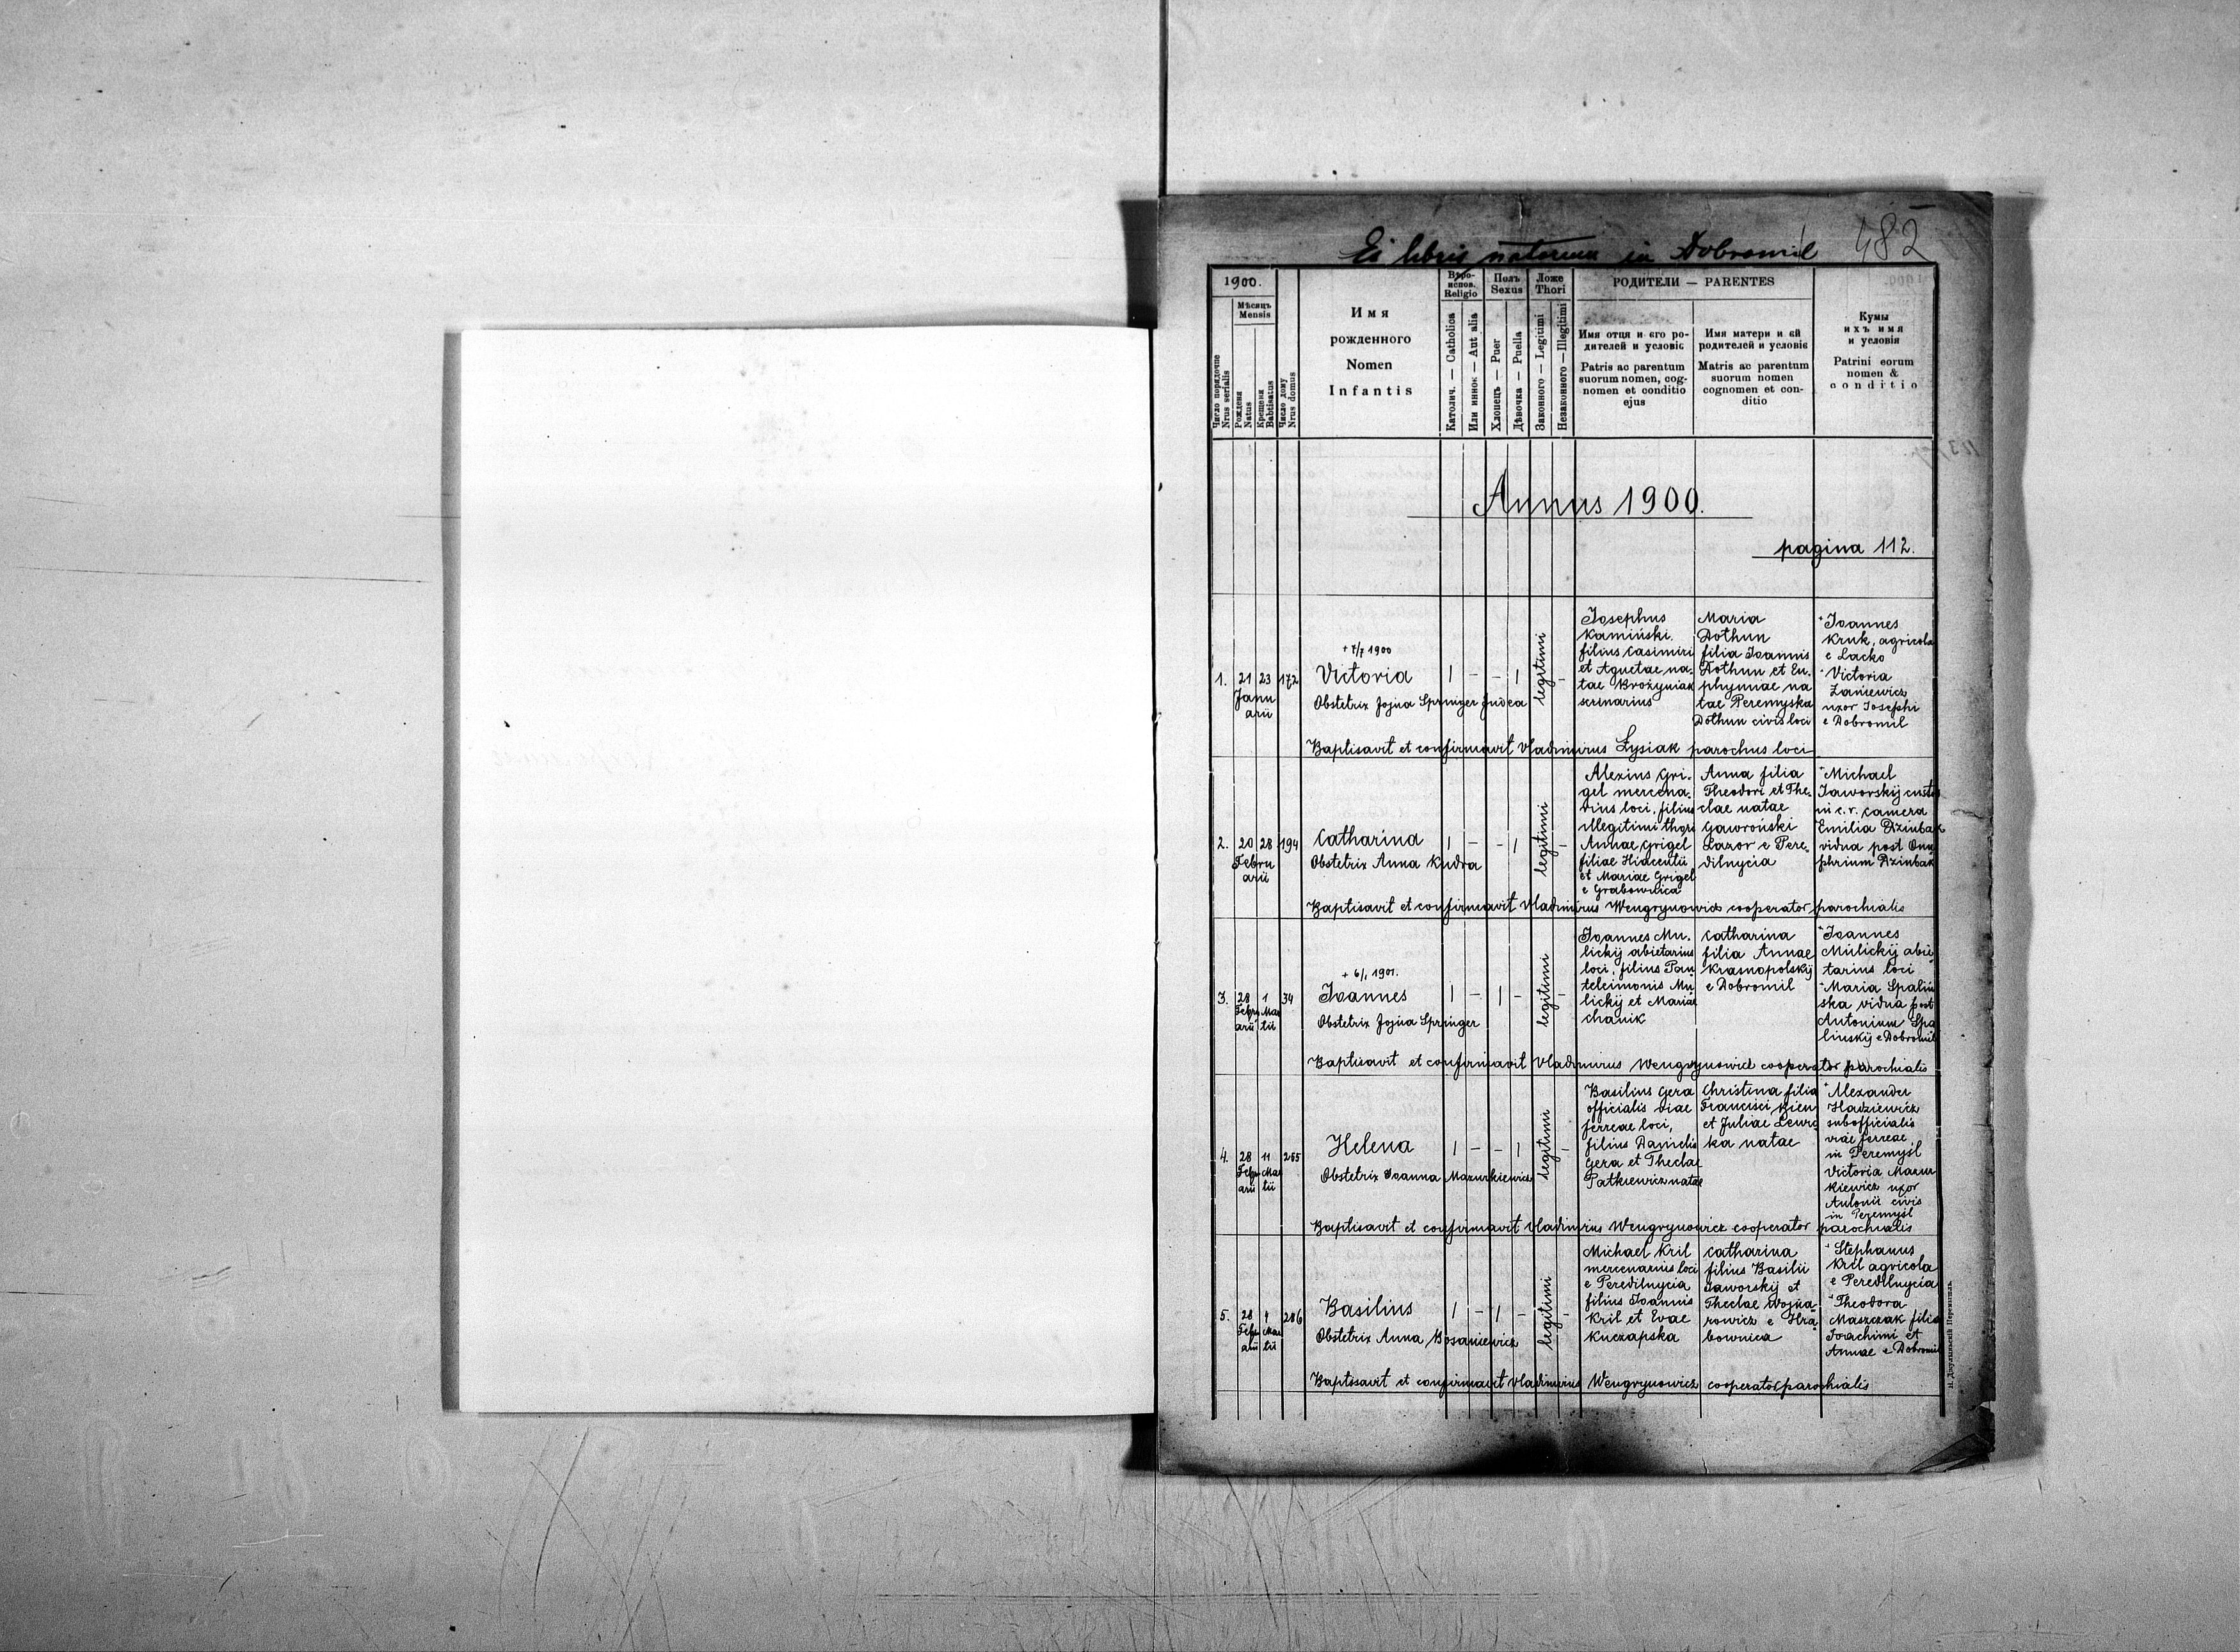 Ex libris natorum in Dobromil
482
1900.
Мѣсяцъ
Mensis
Число порядочне
Nrus serialis
Рожденя
Natus
Крещеня
Babtisatus
Число дому
Nrus domus
Имя
рожденного
Nomen
Infantis
Вѣро-
испов.
Religio
Католич. — Catholica
Или иннок — Aut alia
Полъ
Sexus
Хлопецъ — Puer
Дѣвочка — Puella
Ложе
Thori
Законного — Legitimi
Незаконного — Illegitimi
РОДИТЕЛИ — PARENTES
Имя отця и єго ро-
дителей и условіє
Patris ac parentum
suorum nomen, cog-
nomen et conditio
ejus
Имя матери и єй
родителей и условіє
Matris ac parentum
suorum nomen
cognomen et con-
ditio
Кумы
ихъ имя
и условія
Patrini eorum
nomen &
conditio
Annus 1900.
pagina 112.
1.
21 23
Janu
arii
172
+ 7/7 1900
Victoria
Obstetrix Jojna Springer Judea
1 - - 1
legitimi
-
Josephus
Kamiński
filius Casimiri
et Agnetae na-
tae Brożyniak
serinarius
Maria
Dothun
filia Joannis
Dothun et Eu-
phymiae na
tae Peremyska
Dothun civis loci
Joannes
Kruk, agricola
e Lacko
Victoria
Zaniewicz
uxor Josephi
e Dobromil
Baptisavit et confirmavit Vladimirus Łysiak parochus loci
2.
20 28
Febru
arii
194
Catharina
Obstetrix Anna Kudra
1 - - 1
legitimi
-
Alexius Gri-
gel mercena-
rius loci, filius
illegitimi thori
Annae Grigel
filiae Hiacentii
et Mariae Grigel
e Grabownica
Anna filia
Theodori et The-
clae natae
Gawroński
Lazor e Pere-
dilnycia
Michael
Jaworskij custos
in c. r. camera
Emilia Dziubak
vidua post Onu
phrium Dziubak
Baptisavit et confirmavit Vladimirus Wengrynowicz cooperator parochialis
3.
28 1
Febru Mar
arii tii
34
+ 6/1 1901.
Joannes
Obstetrix Jojna Springer
1 - 1 -
legitimi
-
Joannes Mu-
lickij abietarius
loci, filius Pan
teleimonis Mu
lickij et Mariae
Chanik
Catharina
filia Annae
Krasnopolskij
e Dobromil
Joannes
Mulickij abie
tarius loci
Maria Spaliń
ska vidua post
Antonium Spa
linskij e Dobromil
Baptisavit et confirmavit Vladimirus Wengrynowicz cooperator parochialis
4.
28 11
Febru Mar
arii tii
265
Helena
Obstetrix Joanna Mazurkiewicz
1 - - 1
legitimi
-
Basilius Gera
officialis viae
ferreae loci,
filius Danielis
Gera et Theclae
Patkiewicz natae
Christina filia
Francisci Kien
et Juliae Lewic
ka natae
Alexander
Hadziewicz
subofficialis
viae ferreae
in Peremyśl
Victoria Mazur
kiewicz uxor
Antonii civis
in Peremyśl
Baptisavit et confirmavit Vladimirus Wengrynowicz cooperator parochialis
5.
28 4
Febru Mar
arii tii
286
Basilius
Obstetrix Anna Bosaniewicz
1 - 1 -
legitimi
-
Michael Kril
mercenarius loci
e Peredilnycia
filius Joannis
Kril et Evae
Kuczapska
Catharina
filius Basilii
Jaworskij et
Theclae Wojna-
rowicz e Hra
bownica
Stephanus
Kril agricola
e Peredilnycia
Theodora
Maszczak filia
Joachimi et
Annae e Dobromil
Baptisavit et confirmavit Vladimirus Wengrynowicz cooperator parochialis